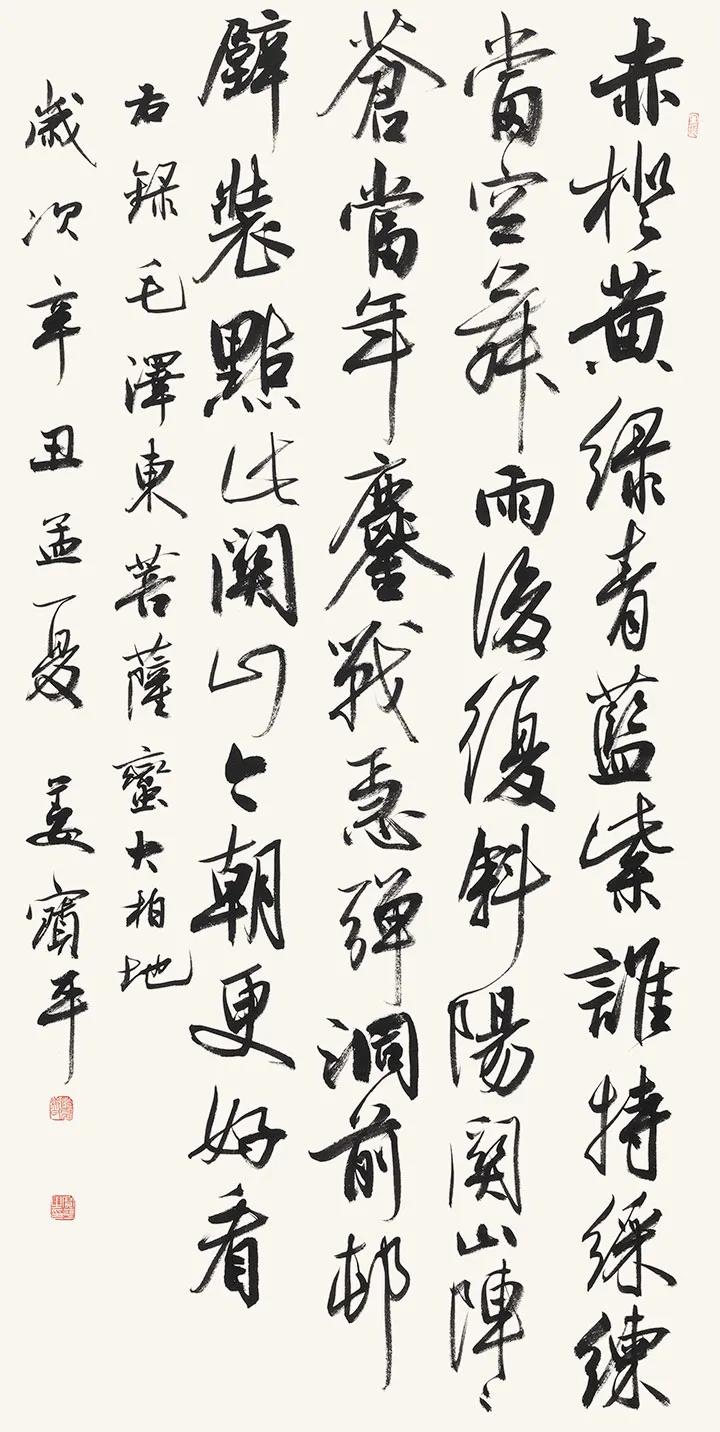 赤橙黄綠青藍紫誰持綵練
當空舞雨後復斜陽關山陣〻
蒼當年鏖戰急彈洞前邨
壁裝點此關山今朝更好看
右錄毛澤東菩薩蠻大柏地
歲次辛丑孟夏 姜賓平